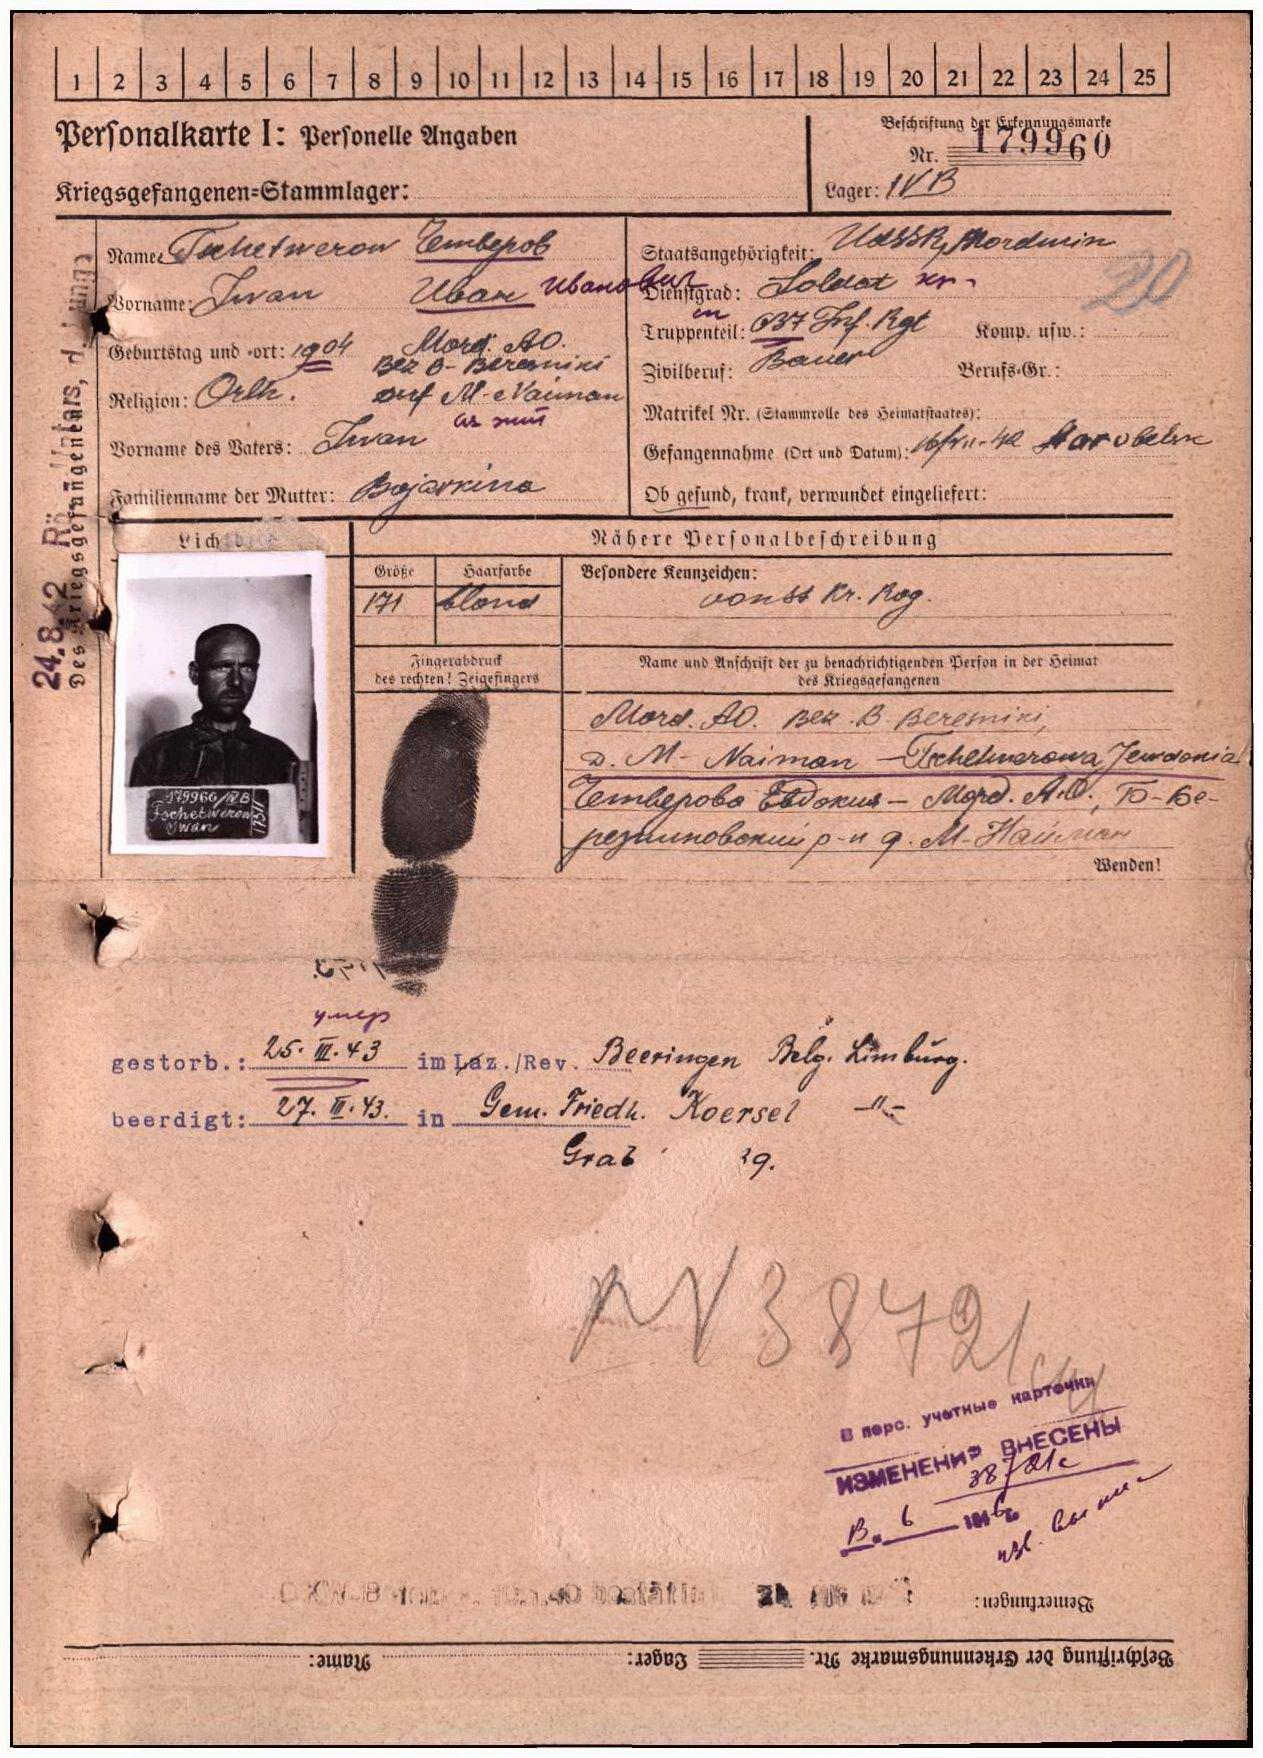 1 2 3 4 5 6 7 8 9 10 11 12 13 14 15 16 17 18 19 20 21 22 23 24 25
Personalkarte I: Personelle Angaben
Kriegsgefangenen=Stammlager:
Beschriftung der Erkennungsmarke
Nr. 179960
Lager: IVB
Des Kriegsgefangenen
24.8.42
Name: Tschetwerow Четверов
Vorname: Iwan Иван Иванович
Geburtstag und -ort: 1904 Mord. AO.
Bez B- Beresniki
Religion: Orth. dorf M- Naiman
Vorname des Vaters: Iwan
Familienname der Mutter: Bojarkina
Staatsangehörigkeit: UdSSR, Mordwin
Dienstgrad: Soldat кр-
20
Truppenteil: 637 Inf. Rgt Komp. usw.:
Zivilberuf: Bauer Berufs=Gr.:
Matrikel Nr. (Stammrolle des Heimatstaates):
Gefangennahme (Ort und Datum): 16/VII-42 Starobelsk
Ob gesund, krank, verwundet eingeliefert:
Nähere Personalbeschreibung
Größe Haarfarbe Besondere Kennzeichen:
171 blond
Fingerabdruck
des rechten! Zeigefingers
Name und Anschrift der zu benachrichtigenden Person in der Heimat
des Kriegsgefangenen
Mord. AO. Bez. B. Beresniki,
D. M- Naiman - Tschetwerowa Jewdokia
Четверова Евдокия - Морд. А.О., Б-Бе-
резниковский р-н д. М-Найман
Wenden!
179960/IVB
Tschetwerow
Iwan
умер
gestorb.: 25. III. 43 im Laz./Rev. Beeringen Belg. Limburg.
beerdigt: 27. III. 43. in Gem. Friedh. Koersel -"-
Grab 29.
N 3872
В перс. учетные карточки
ИЗМЕНЕНИЯ ВНЕСЕНЫ
Bemerkungen:
Beschriftung der Erkennungsmarke Nr. Lager: Name: